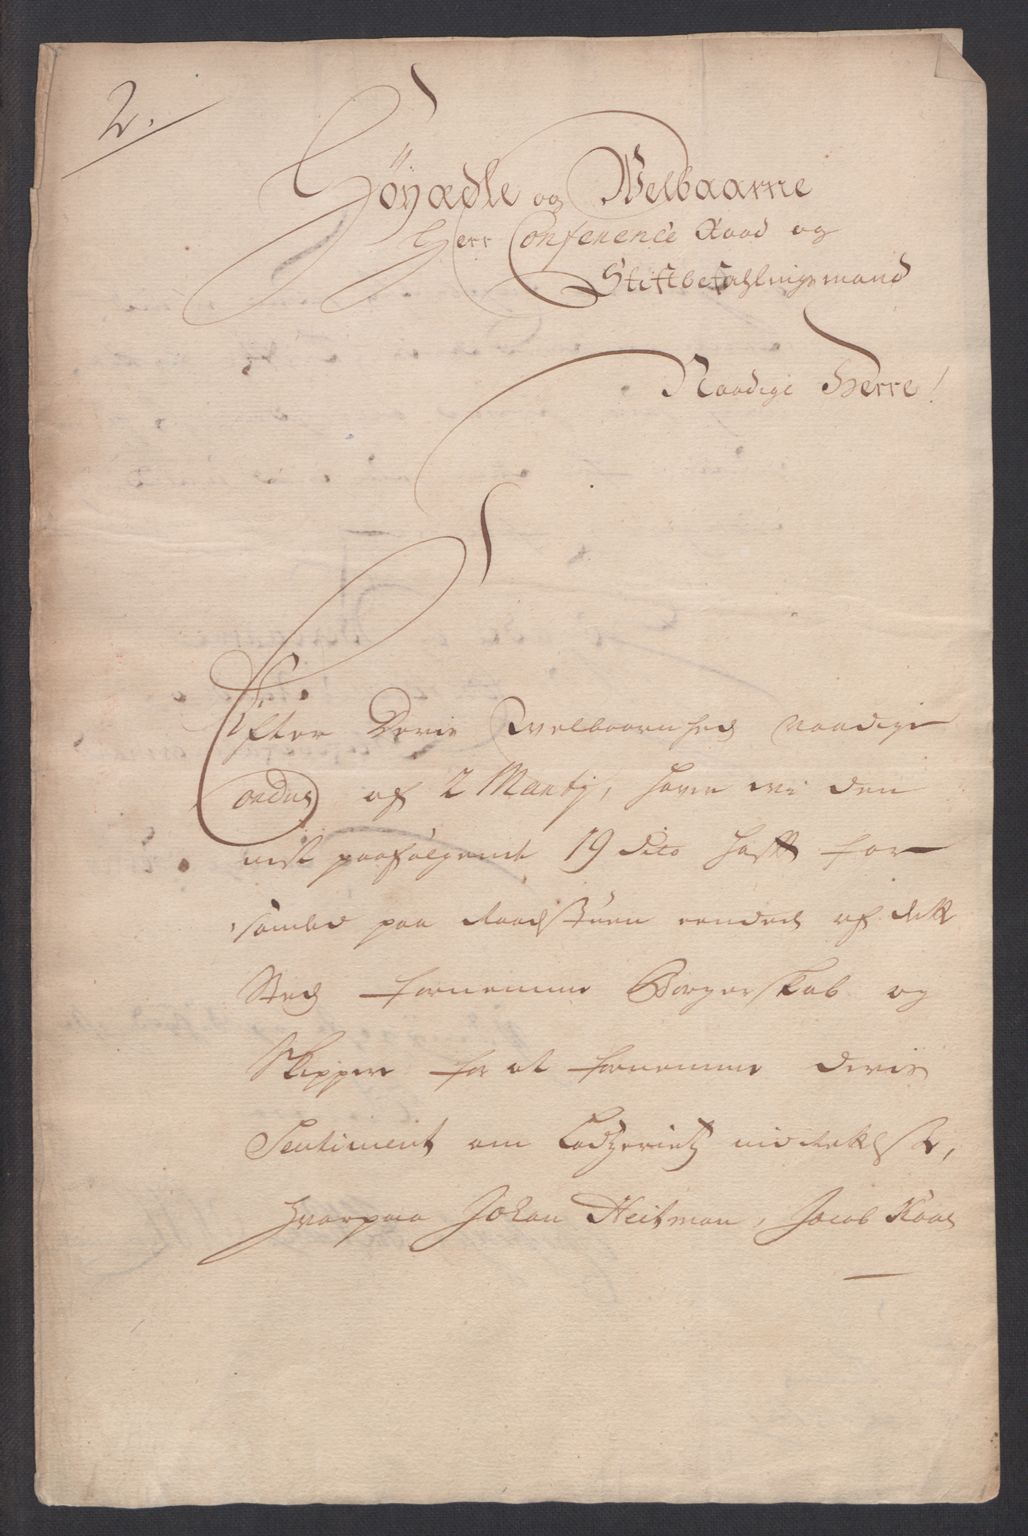 2.
Höyædle og Welbaarne
Herr Conference Raad og
Stiftbefahlingsmand
Naadige Herre!
Efter Deris Welbaarnhed naadige
Ordre af 2 Marty, have wi den
nest paafølgende 19 dito hafft for
samled paa Raadstuen eendeel af dette
Sted fornemme Borgerskab og
Skippere for at fornemme deris
Sentiment om Lodzeriets
hvorpaa Johan Heitman, Jacob Kaas